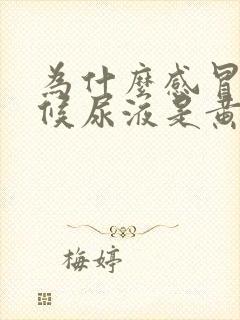 為什麼感冒
候尿液是黃
梅婷